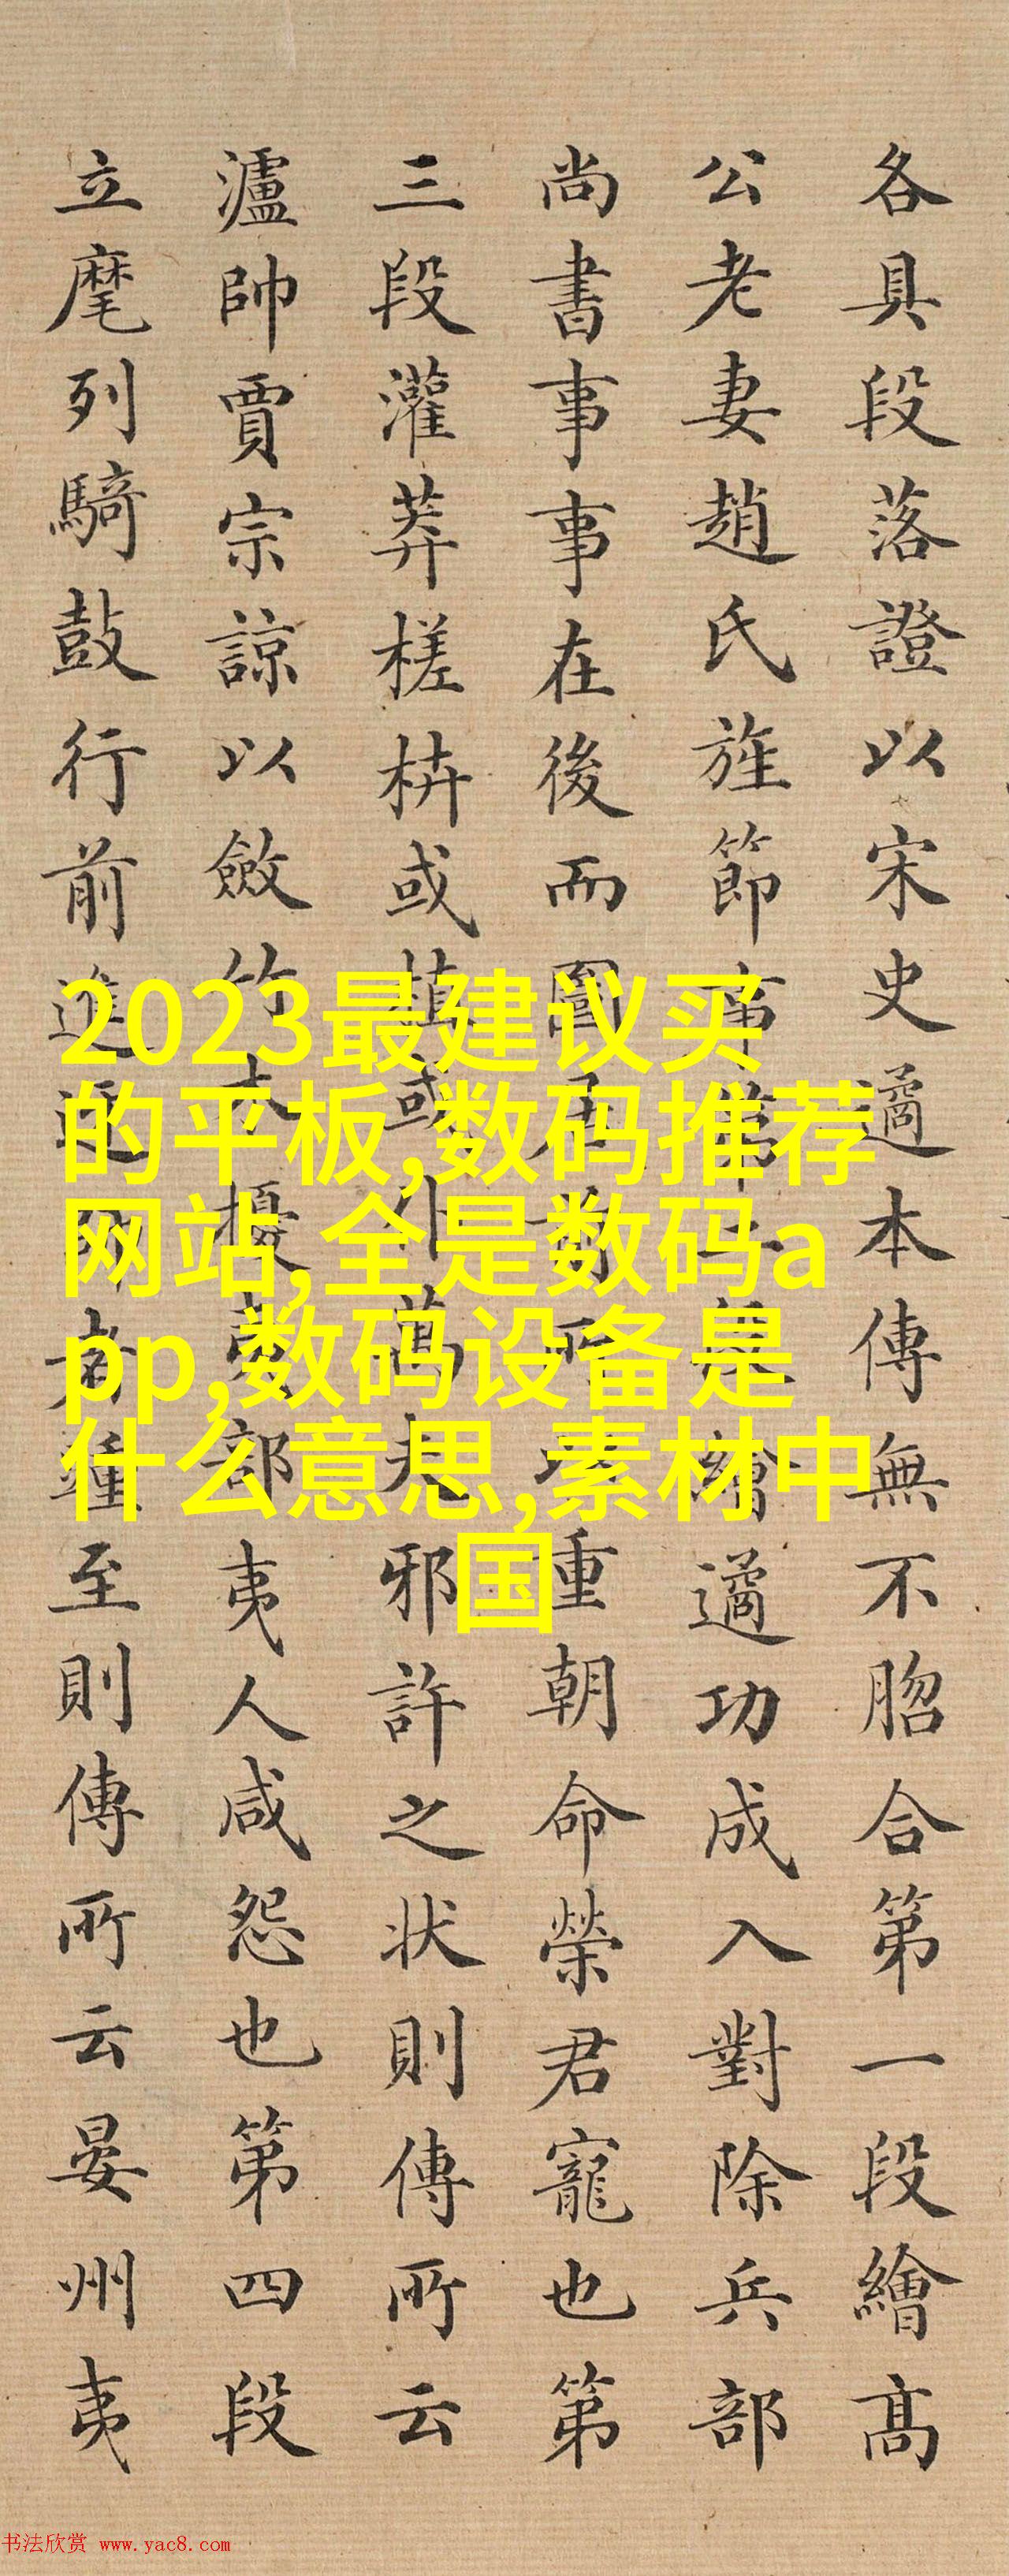 各具段落證以宋史遹本傳無不脗合第一段繪髙
公老妻趙氏旌節事第段繪遹功成入對除兵部
尚書事事在後而圖居前所重朝命榮君寵也第
三段灌莽槎枿或植或仆萬夫邪許之状則傳所云
瀘帥賈宗諒以斂竹木擾夷部夷人咸怨也第四段
立麾列騎鼓行前進種至則傳所云晏州夷
2023最建议买
的平板,数码推荐
网站,全是数码a
pp,数码设备是
什么意思,素材中
国
书法欣赏 www.yac8.com